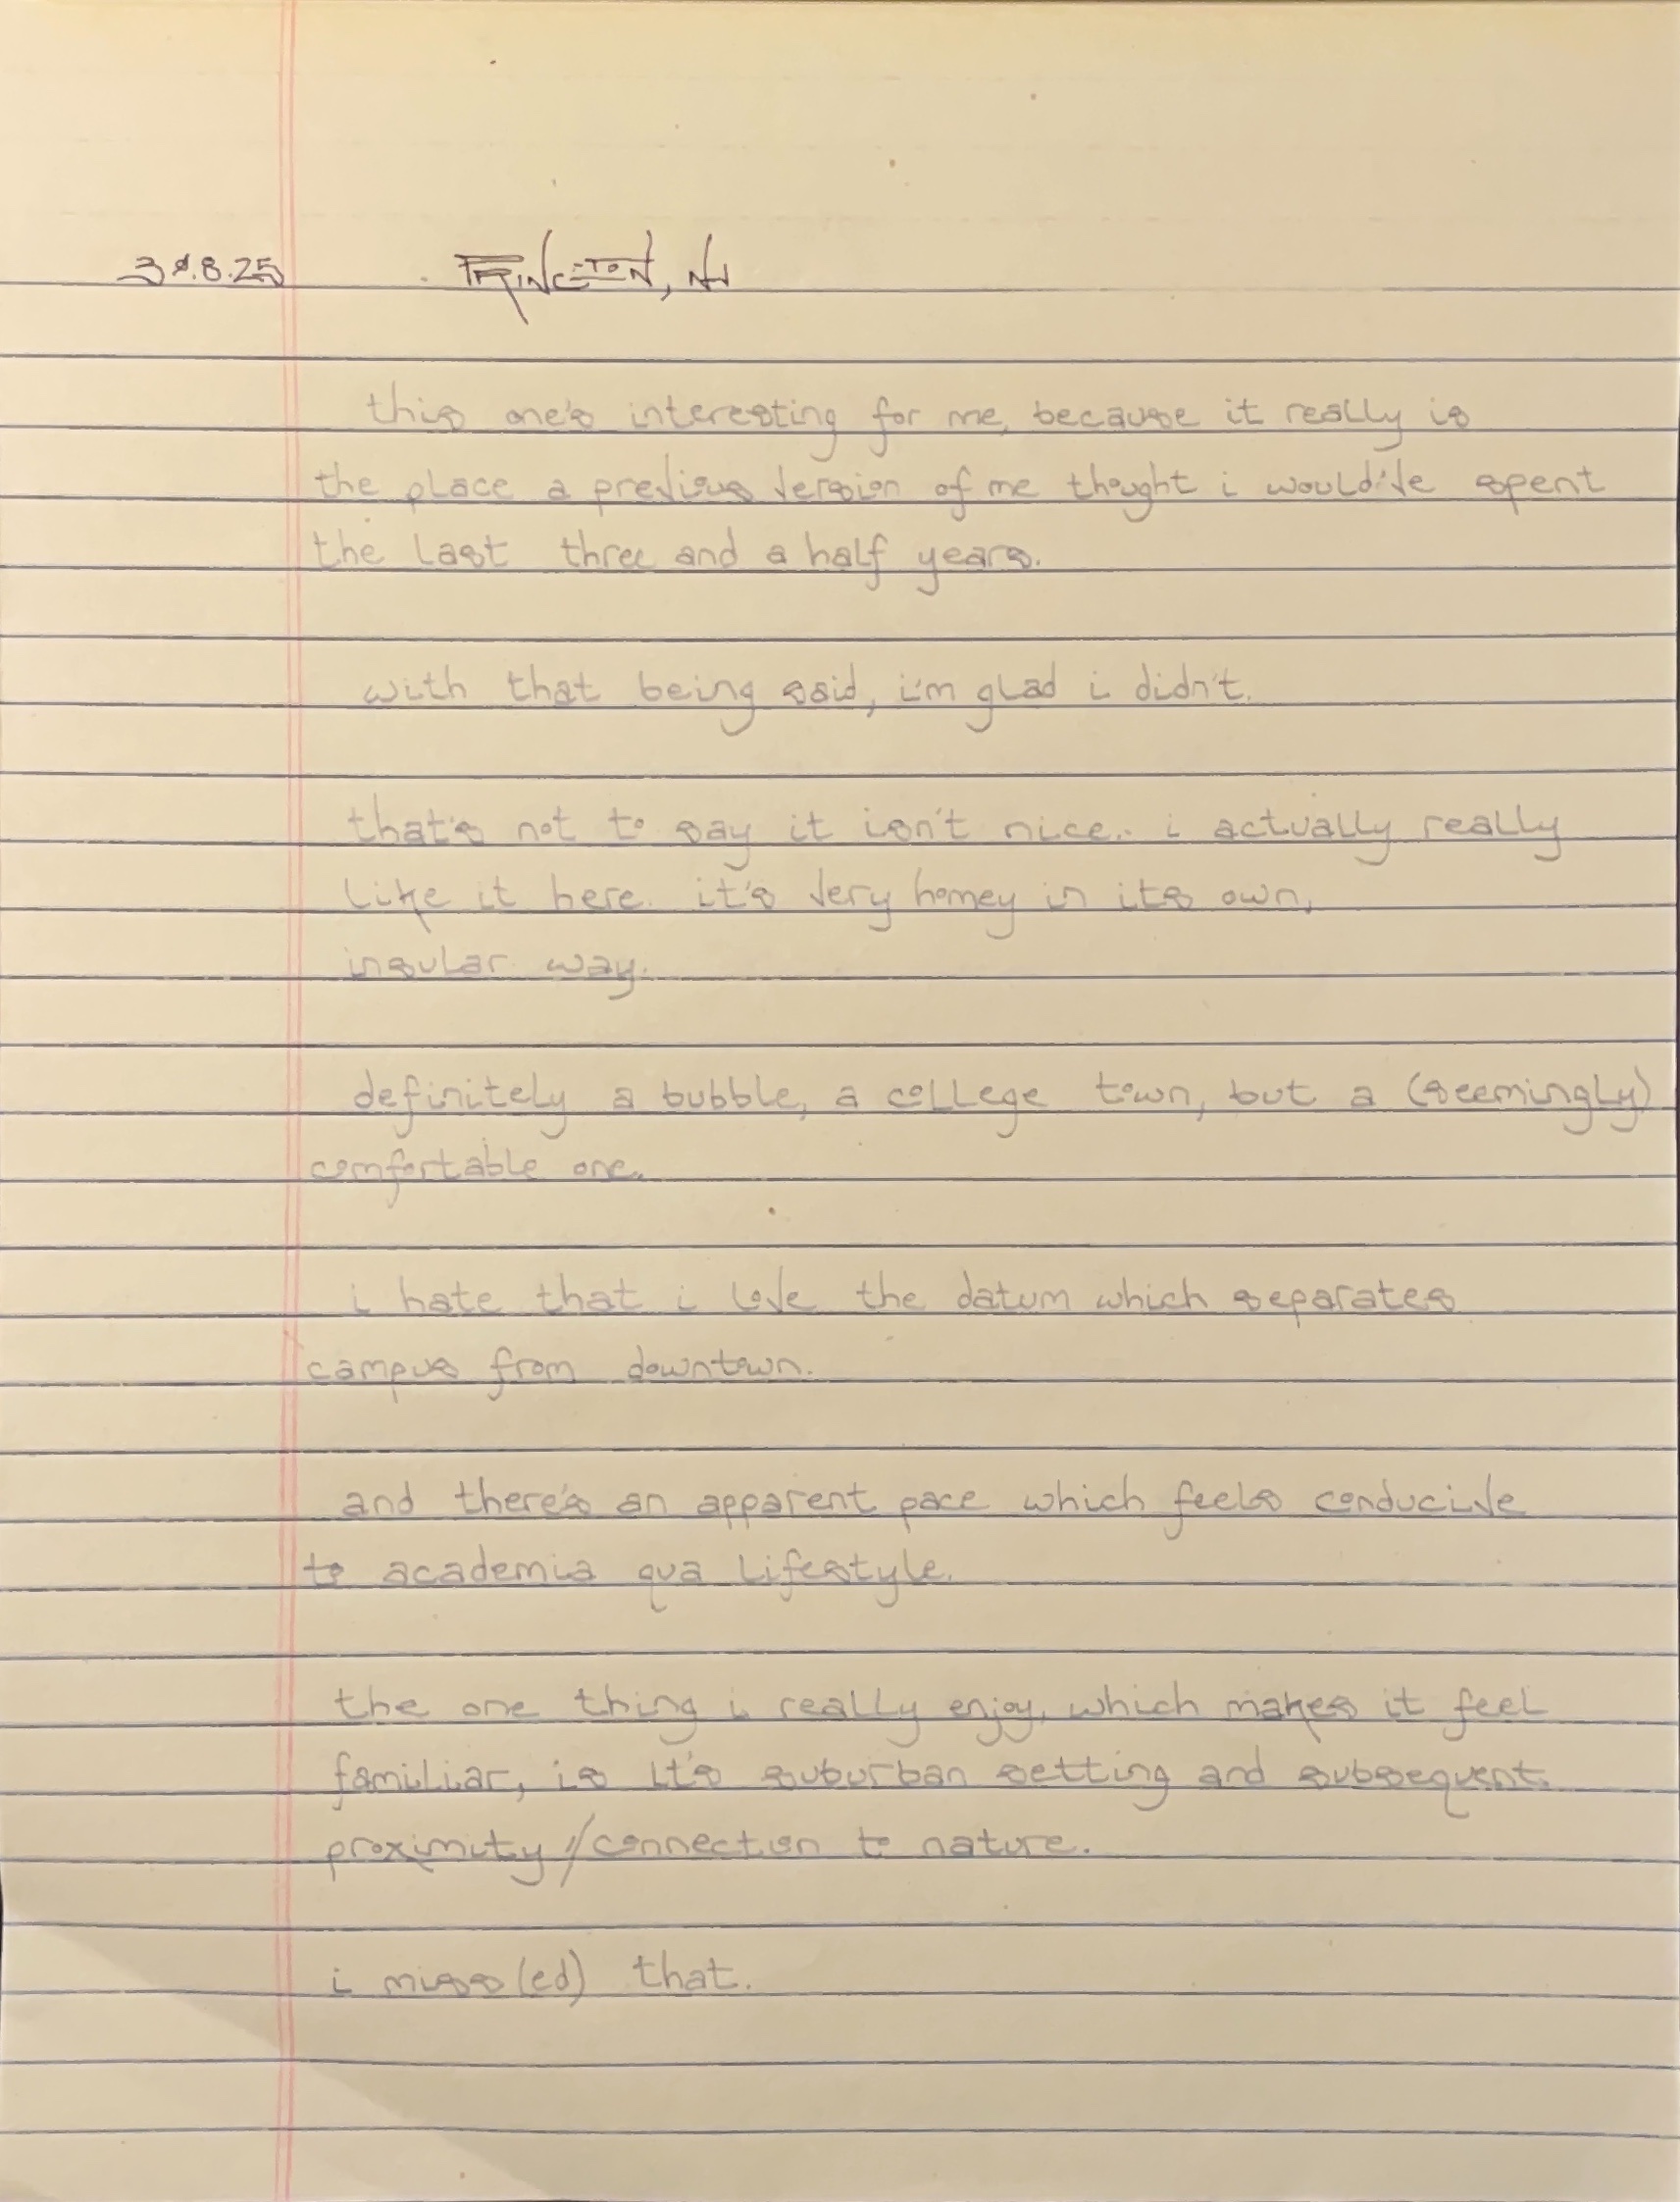 30.8.25 PRINCETON, NJ
this one's interesting for me, because it really is
the place a previous version of me thought i would've spent
the last three and a half years.
with that being said, i'm glad i didn't.
that's not to say it isn't nice.. i actually really
like it here. it's very homey in its own,
insular way.
definitely a bubble, a college town, but a (seemingly)
comfortable one.
i hate that i love the datum which separates
campus from downtown.
and there's an apparent pace which feels conducive
to academia qua lifestyle.
the one thing i really enjoy, which makes it feel
familiar, is it's suburban setting and subsequent
proximity//connection to nature.
i miss(ed) that.